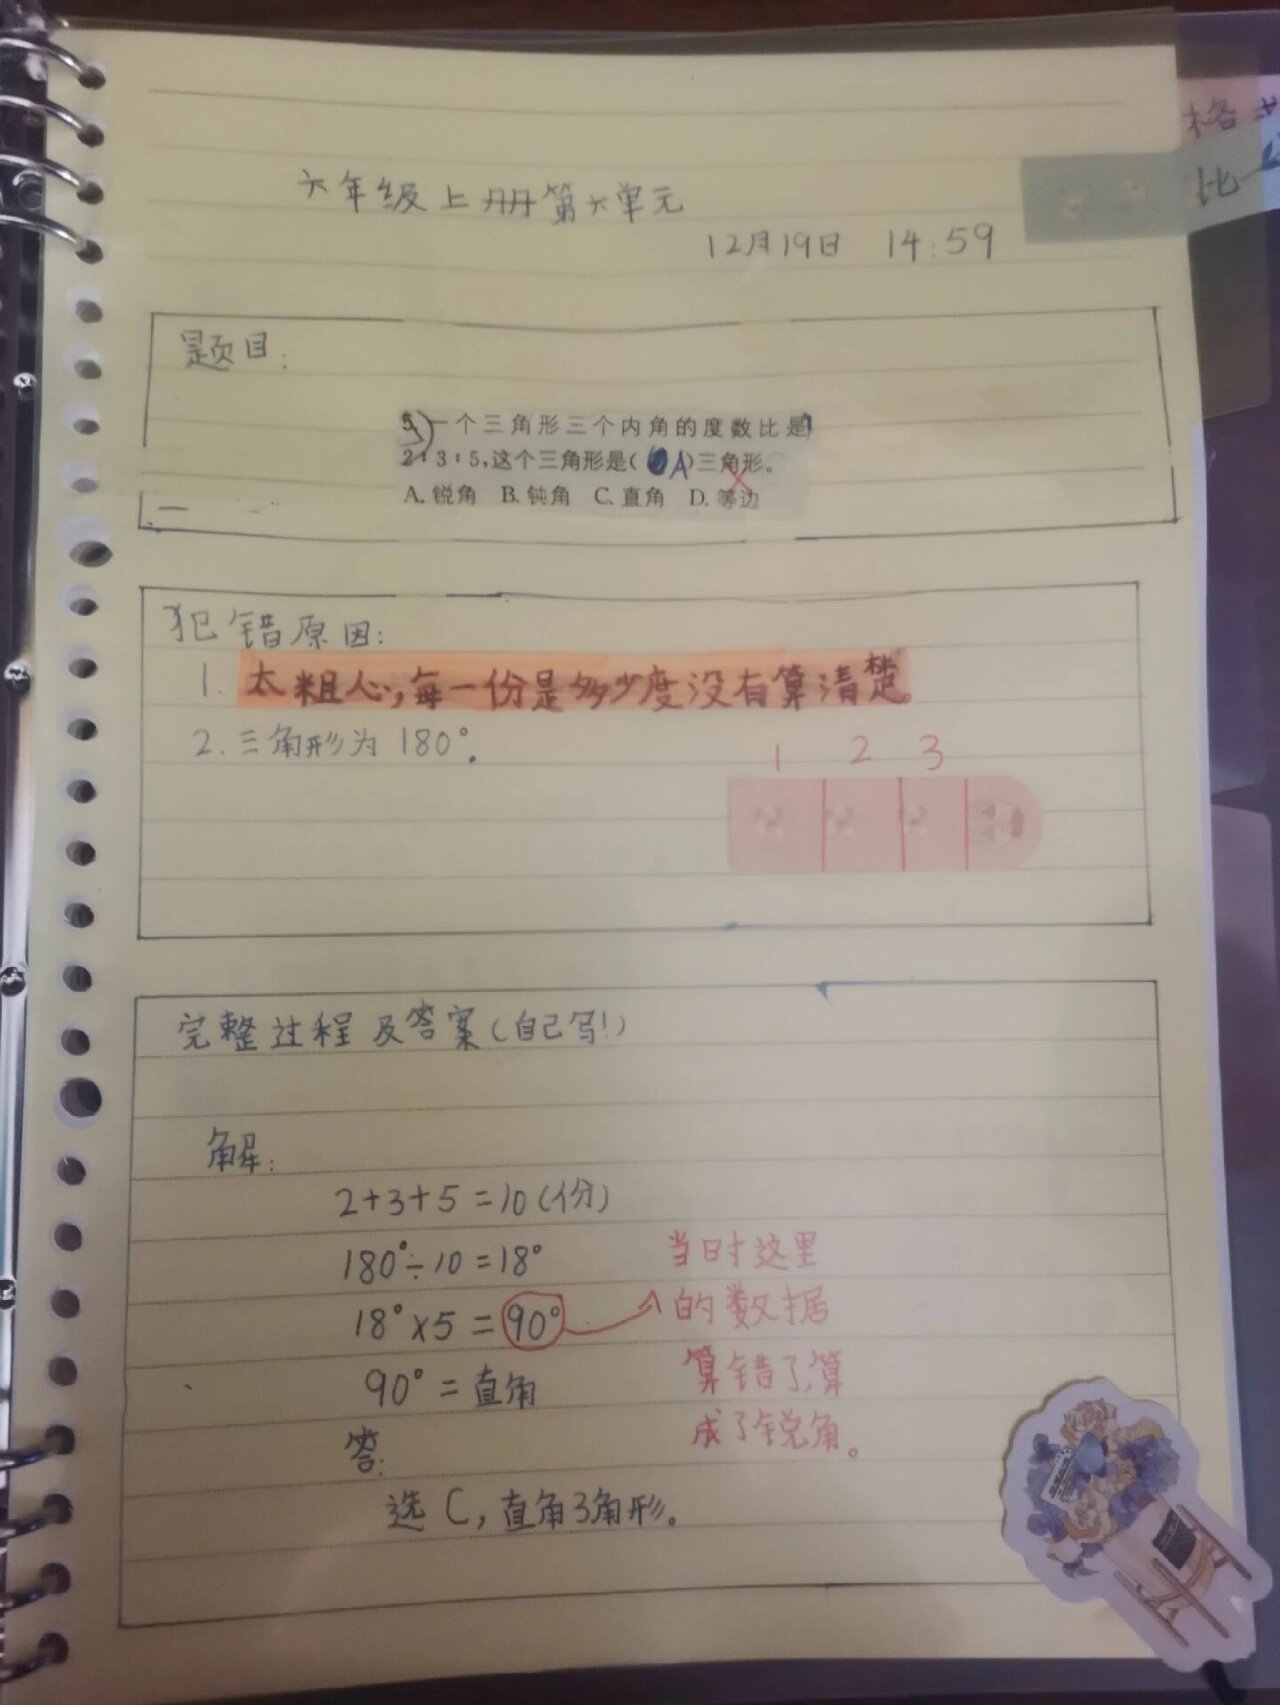 格
比
六年级上册第六单元
12月19日 14:59
题目:
5. 一个三角形三个内角的度数比是
2:3:5,这个三角形是( A )三角形。
A. 锐角 B. 钝角 C. 直角 D. 等边
犯错原因:
1. 太粗心,每一份是多少度没有算清楚。
2. 三角形为180°.
1 2 3
完整过程及答案(自己写!)
解:
2+3+5=10(份)
180°÷10=18°
18°×5=90°
90°=直角
当时这里
的数据
算错了,算
成了锐角。
答:
选C,直角3角形。